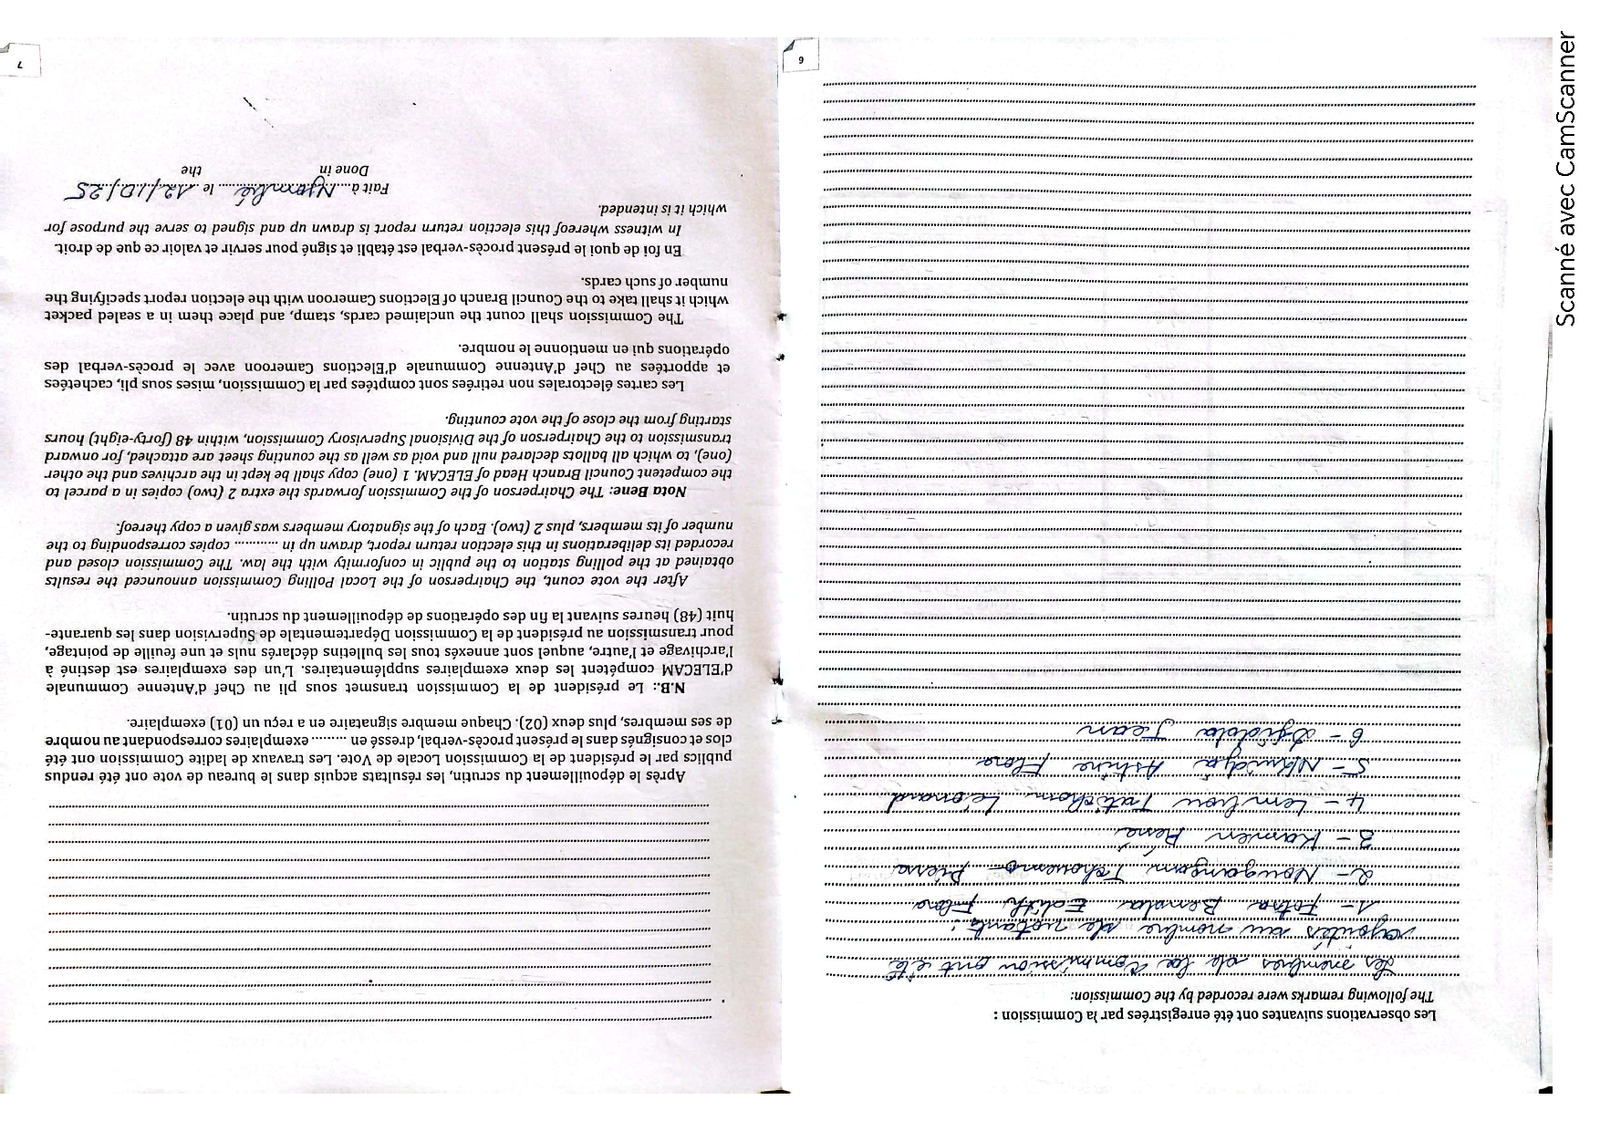 Les observations suivantes ont été enregistrées par la Commission :
The following remarks were recorded by the Commission:
Les membres de la Commission ont été
rajoutés au nombre de votants :
1- Fotsa Benda Edith Flore
2- Nougangoum Tchouemo Pierre
3- Kamen René
4- Lembou Tatichom Léonard
5- Nkwidja Astrine Flore
6- Djidda Jean
6
Après le dépouillement du scrutin, les résultats acquis dans le bureau de vote ont été rendus
publics par le président de la Commission Locale de Vote. Les travaux de ladite Commission ont été
clos et consignés dans le présent procès-verbal, dressé en ......... exemplaires correspondant au nombre
de ses membres, plus deux (02). Chaque membre signataire en a reçu un (01) exemplaire.
N.B.: Le président de la Commission transmet sous pli au Chef d'Antenne Communale
d'ELECAM compétent les deux exemplaires supplémentaires. L'un des exemplaires est destiné à
l'archivage et l'autre, auquel sont annexés tous les bulletins déclarés nuls et une feuille de pointage,
pour transmission au président de la Commission Départementale de Supervision dans les quarante-
huit (48) heures suivant la fin des opérations de dépouillement du scrutin.
After the vote count, the Chairperson of the Local Polling Commission announced the results
obtained at the polling station to the public in conformity with the law. The Commission closed and
recorded its deliberations in this election return report, drawn up in ........... copies corresponding to the
number of its members, plus 2 (two). Each of the signatory members was given a copy thereof.
Nota Bene: The Chairperson of the Commission forwards the extra 2 (two) copies in a parcel to
the competent Council Branch Head of ELECAM. 1 (one) copy shall be kept in the archives and the other
(one), to which all ballots declared null and void as well as the counting sheet are attached, for onward
transmission to the Chairperson of the Divisional Supervisory Commission, within 48 (forty-eight) hours
starting from the close of the vote counting.
Les cartes électorales non retirées sont comptées par la Commission, mises sous pli, cachetées
et apportées au Chef d'Antenne Communale d'Elections Cameroon avec le procès-verbal des
opérations qui en mentionne le nombre.
The Commission shall count the unclaimed cards, stamp, and place them in a sealed packet
which it shall take to the Council Branch of Elections Cameroon with the election report specifying the
number of such cards.
En foi de quoi le présent procès-verbal est établi et signé pour servir et valoir ce que de droit.
In witness whereof this election return report is drawn up and signed to serve the purpose for
which it is intended.
Fait à Njombé le 12/10/25
Done in the
7
Scanné avec CamScanner